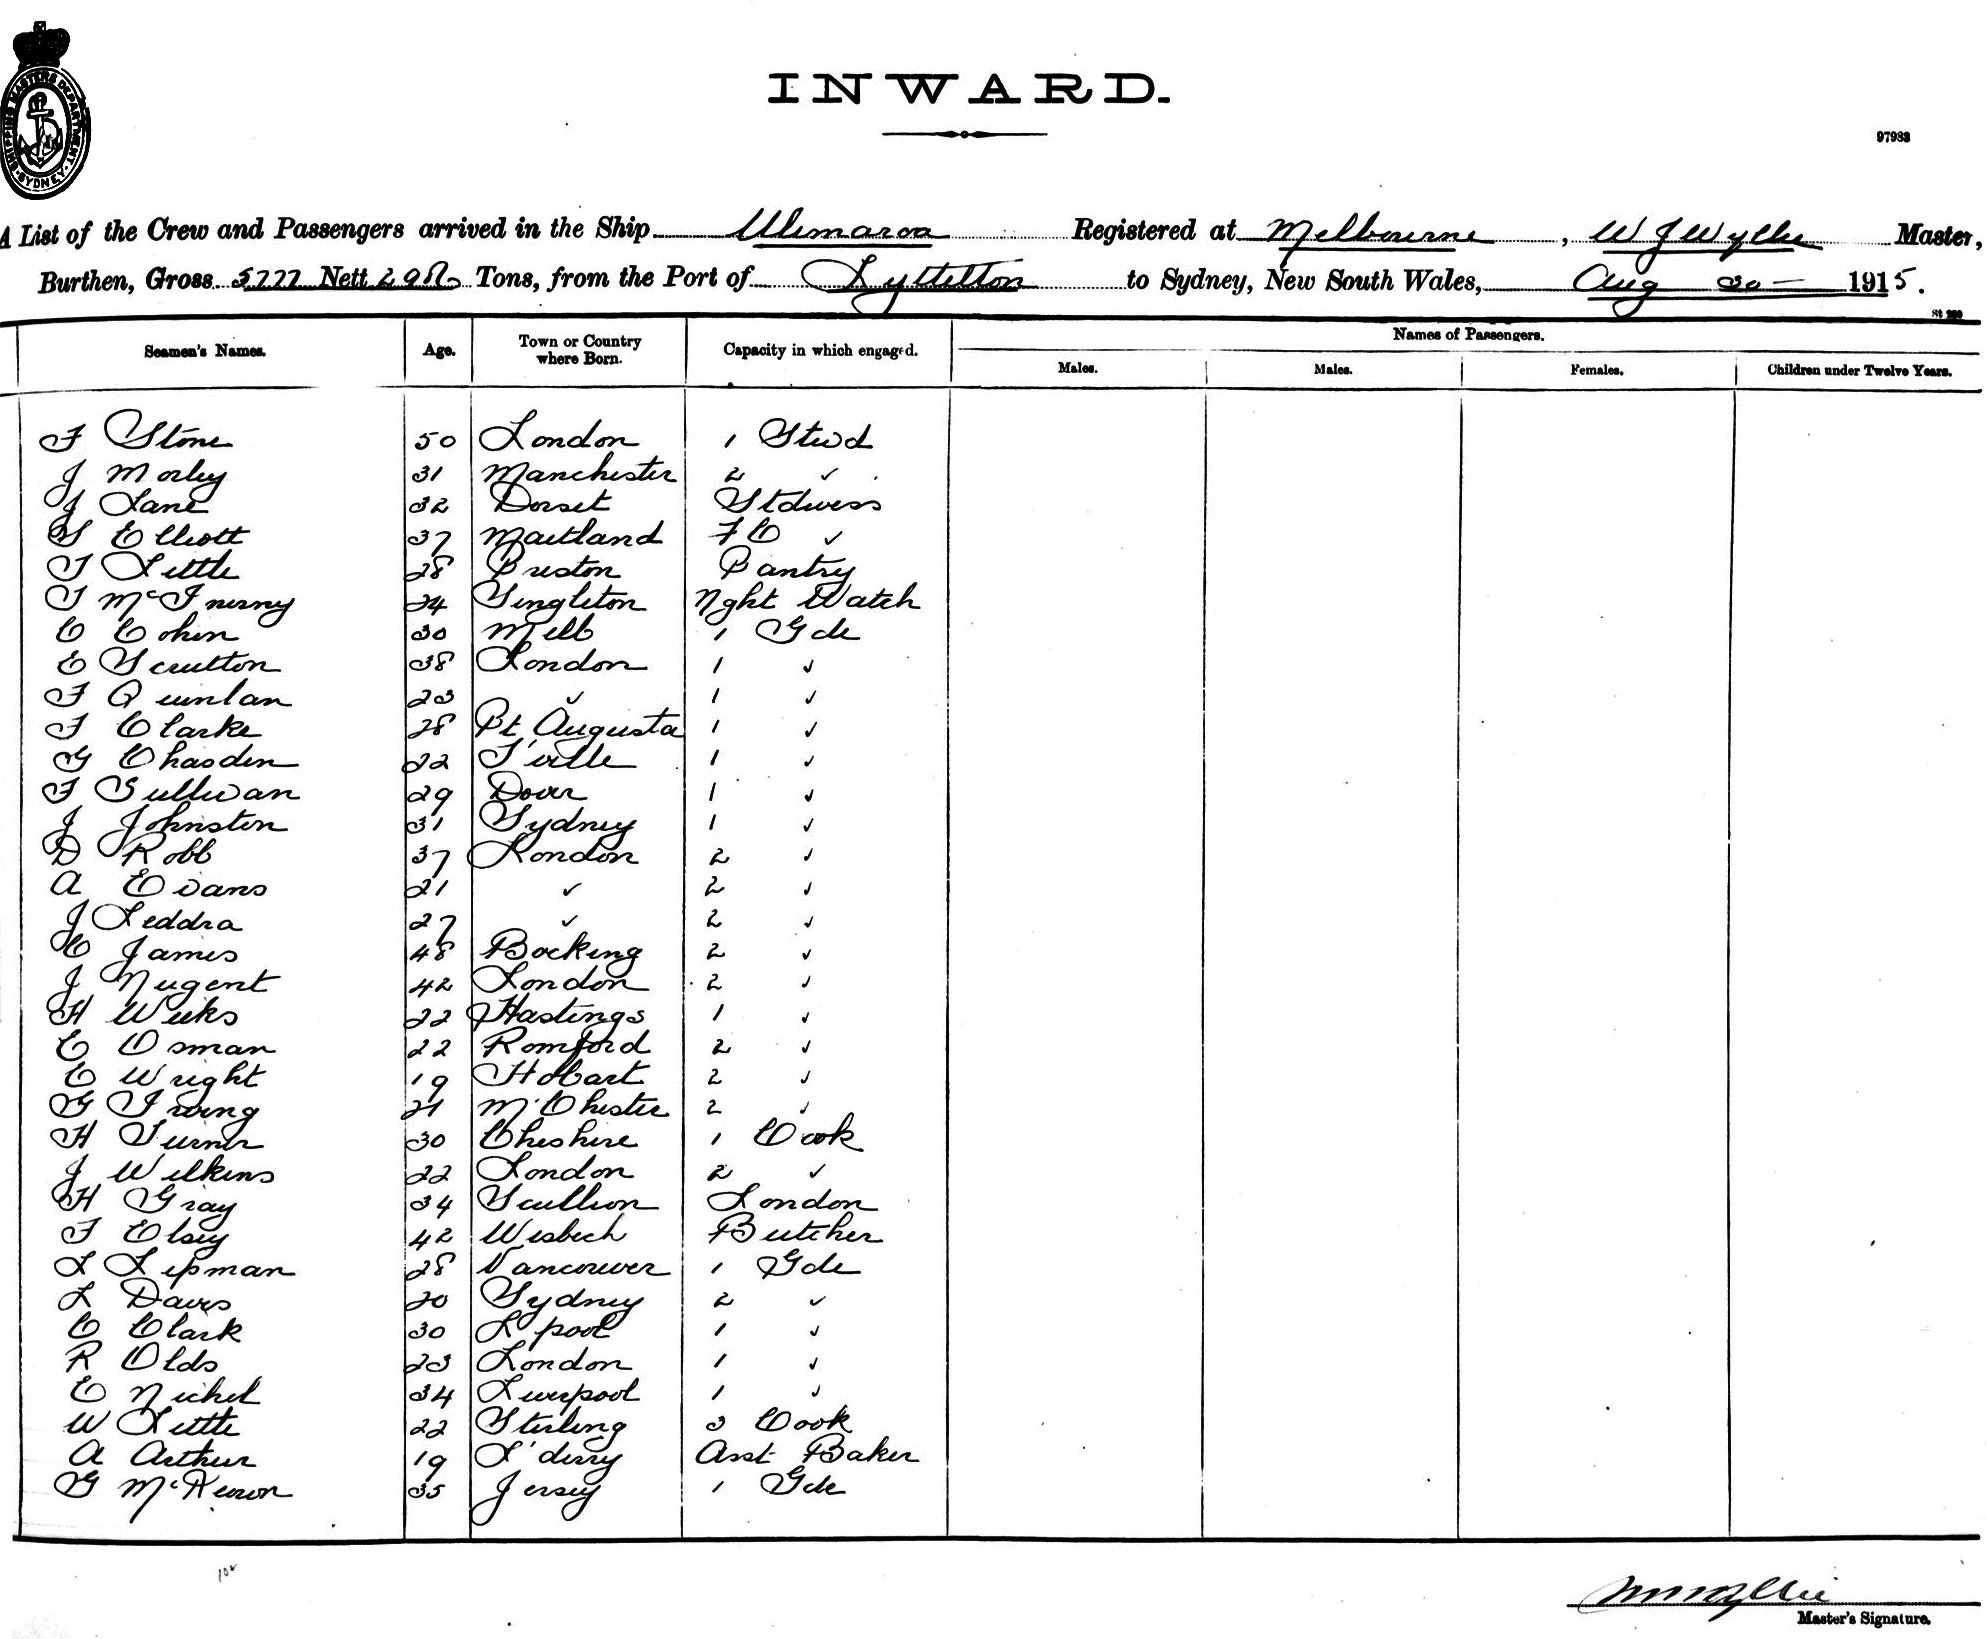 SHIPPING MASTERS DEPARTMENT. SYDNEY.
INWARD.
97983
A List of the Crew and Passengers arrived in the Ship Ulimaroa Registered at Melbourne, W J Wyllie Master,
Burthen, Gross 5777 Nett Tons, from the Port of Lyttelton to Sydney, New South Wales, Aug 30 1915.
Seamen's Names. Age. Town or Country where Born. Capacity in which engaged. Names of Passengers.
Males. Males. Females. Children under Twelve Years.
F Stone 50 London 1 Stwd
J Morley 31 Manchester 2 ✓
J Lane 32 Dorset Stdwess
S Elliott 37 Maitland F C ✓
T Little 28 Preston Pantry
T McInerny 24 Singleton Nght Watch
C Cohen 30 Melb 1 Gde
E Scrutton 38 London 1 ✓
F Quinlan 23 ✓ 1 ✓
F Clarke 28 Pt Augusta 1 ✓
G Chasden 22 T'ville 1 ✓
F Sullivan 29 Dover 1 ✓
J Johnston 31 Sydney 1 ✓
D Robb 37 London 2 ✓
A Evans 21 ✓ 2 ✓
J Leddra 27 ✓ 2 ✓
C James 48 Bocking 2 ✓
J Nugent 42 London 2 ✓
H Weeks 22 Hastings 1 ✓
C Osman 22 Romford 2 ✓
C Wright 19 Hobart 2 ✓
G Irving 21 M'Chester 2 ✓
H Turner 30 Cheshire 1 Cook
J Wilkins 22 London 2 ✓
H Gray 34 Scullion London
F Elsey 42 Wisbech Butcher
L Lipman 28 Vancouver 1 Gde
L Davis 20 Sydney 2 ✓
C Clark 30 L'pool 1 ✓
R Olds 23 London 1 ✓
E Nichel 34 Liverpool 1 ✓
W Little 22 Sterling 3 Cook
A Arthur 19 L'derry Asst Baker
G McKeown 35 Jersey 1 Gde
W J Wyllie
Master's Signature.